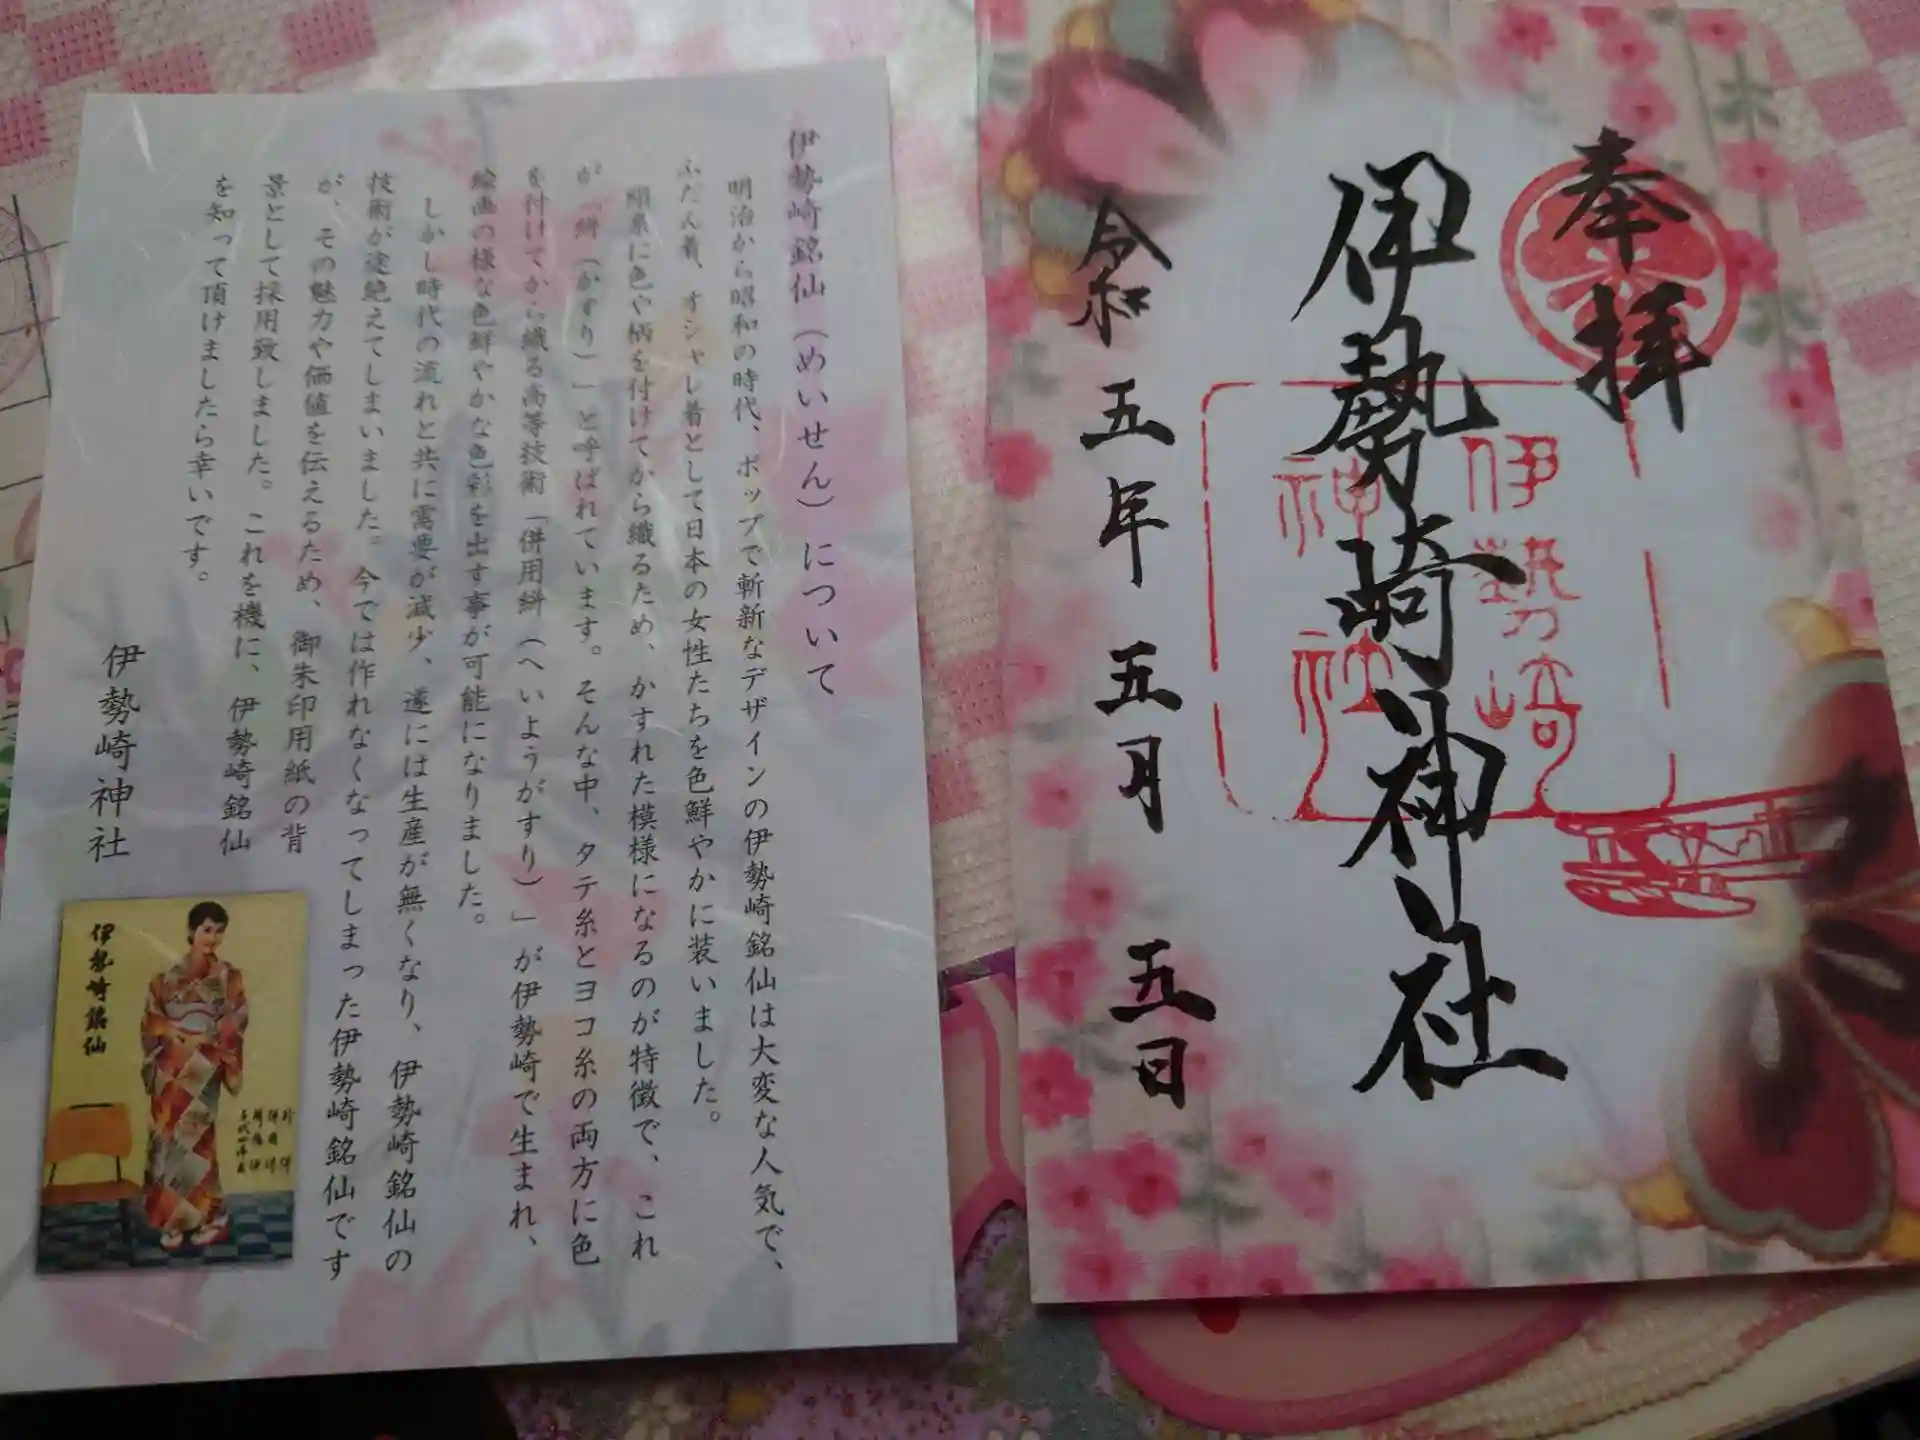 奉拝
伊勢崎神社
伊勢崎
神社
令和五年五月五日
伊勢崎銘仙（めいせん）について
明治から昭和の時代、ポップで斬新なデザインの伊勢崎銘仙は大変な人気で、
ふだん着、オシャレ着として日本の女性たちを色鮮やかに装いました。
絹糸に色や柄を付けてから織るため、かすれた模様になるのが特徴で、これ
が「絣（かすり）」と呼ばれています。そんな中、タテ糸とヨコ糸の両方に色
を付けてから織る高等技術「併用絣（へいようがすり）」が伊勢崎で生まれ、
絵画の様な色鮮やかな色彩を出す事が可能になりました。
しかし時代の流れと共に需要が減少、遂には生産が無くなり、伊勢崎銘仙の
技術が途絶えてしまいました。今では作れなくなってしまった伊勢崎銘仙です
が、その魅力や価値を伝えるため、御朱印用紙の背
景として採用致しました。これを機に、伊勢崎銘仙
を知って頂けましたら幸いです。
伊勢崎神社
伊勢崎銘仙